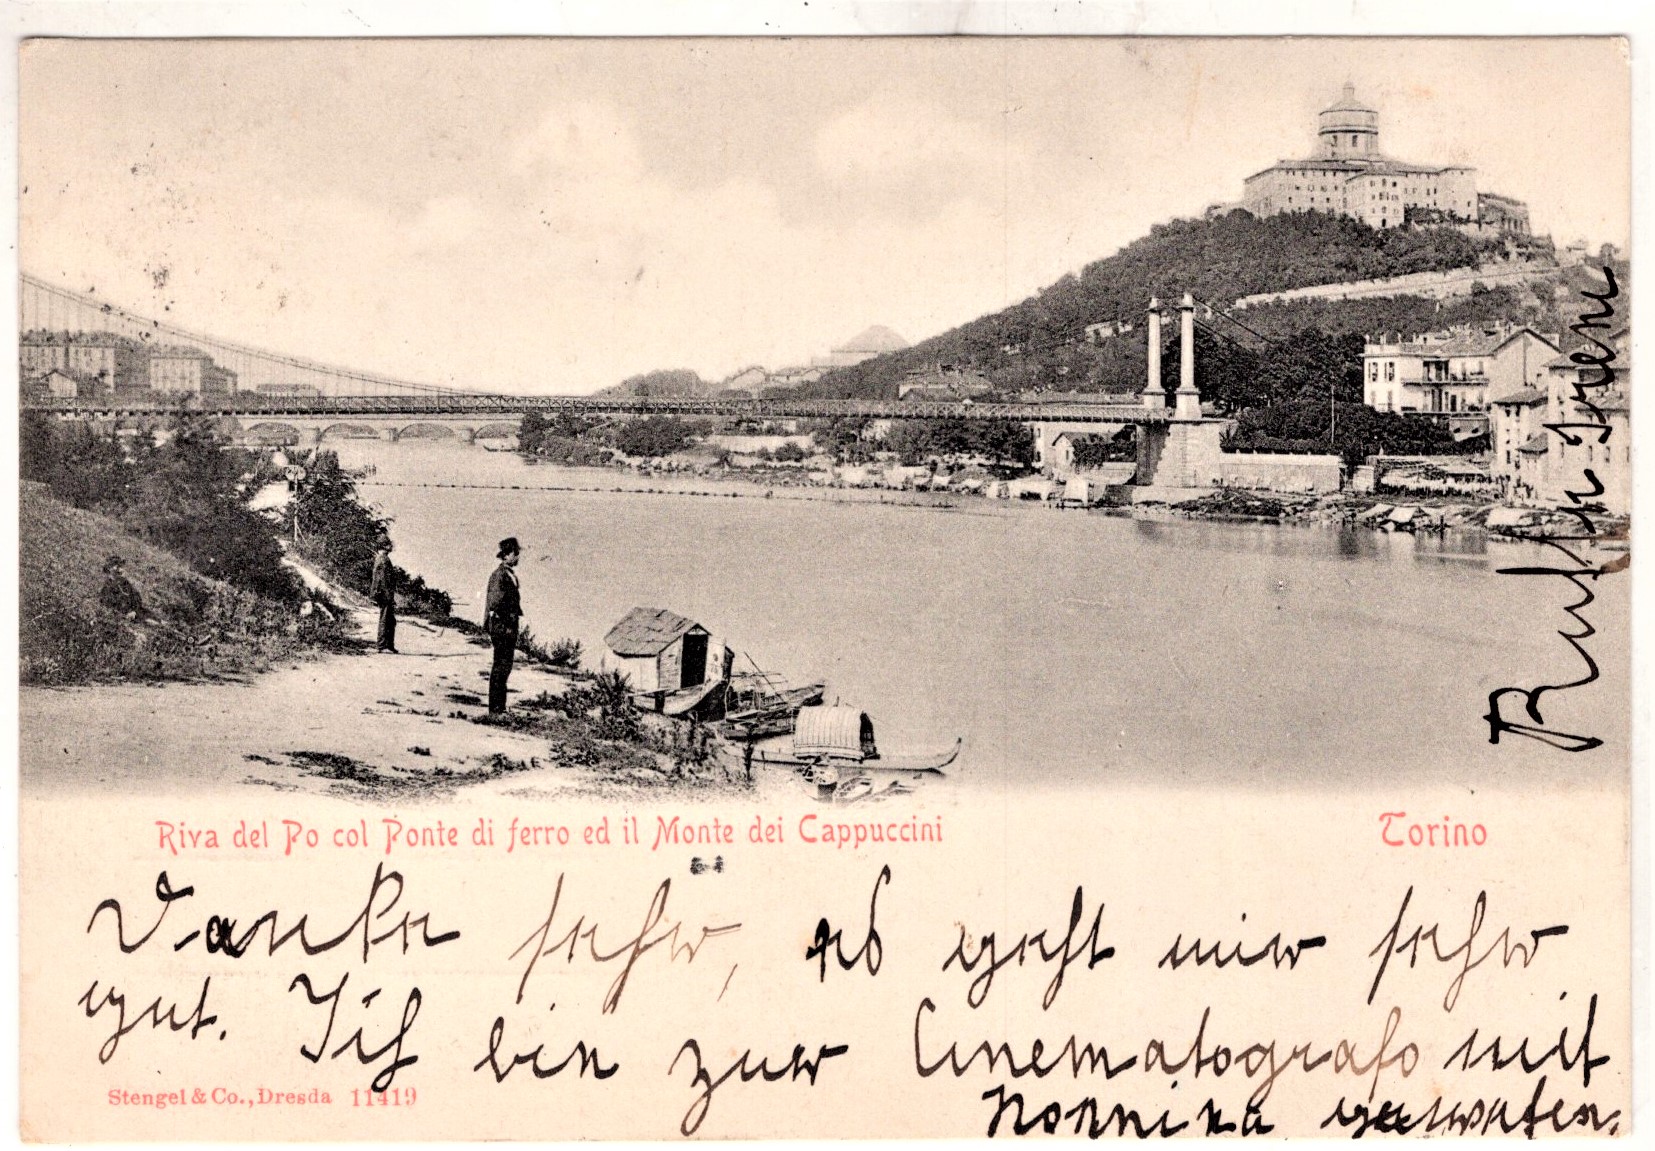 Riva del Po col Ponte di ferro ed il Monte dei Cappuccini
Torino
Danke sehr, es geht mir sehr
gut. Ich bin zur Cinematografo mit
Nonnina gewesen.
Stengel & Co., Dresda 11419
Irene